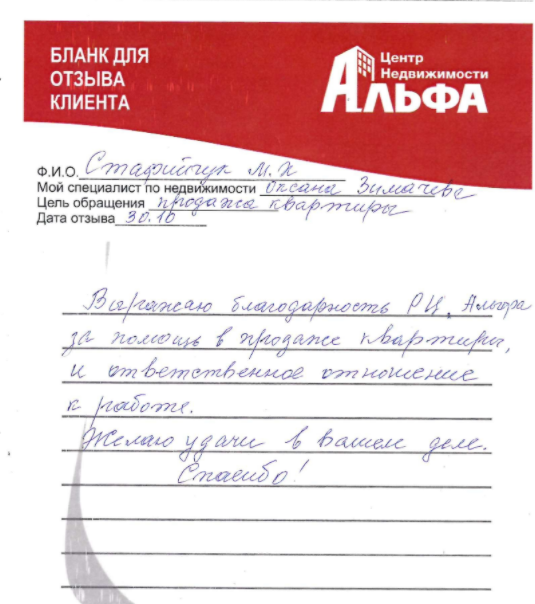 БЛАНК ДЛЯ
ОТЗЫВА
КЛИЕНТА
Центр
Недвижимости
АЛЬФА
Ф.И.О. Стафийчук М. К
Мой специалист по недвижимости Оксана Зимачева
Цель обращения продажа квартиры
Дата отзыва 30.10
Выражаю благодарность РЦ. Альфа
за помощь в продаже квартиры,
и ответственное отношение
к работе.
Желаю удачи в вашем деле.
Спасибо!